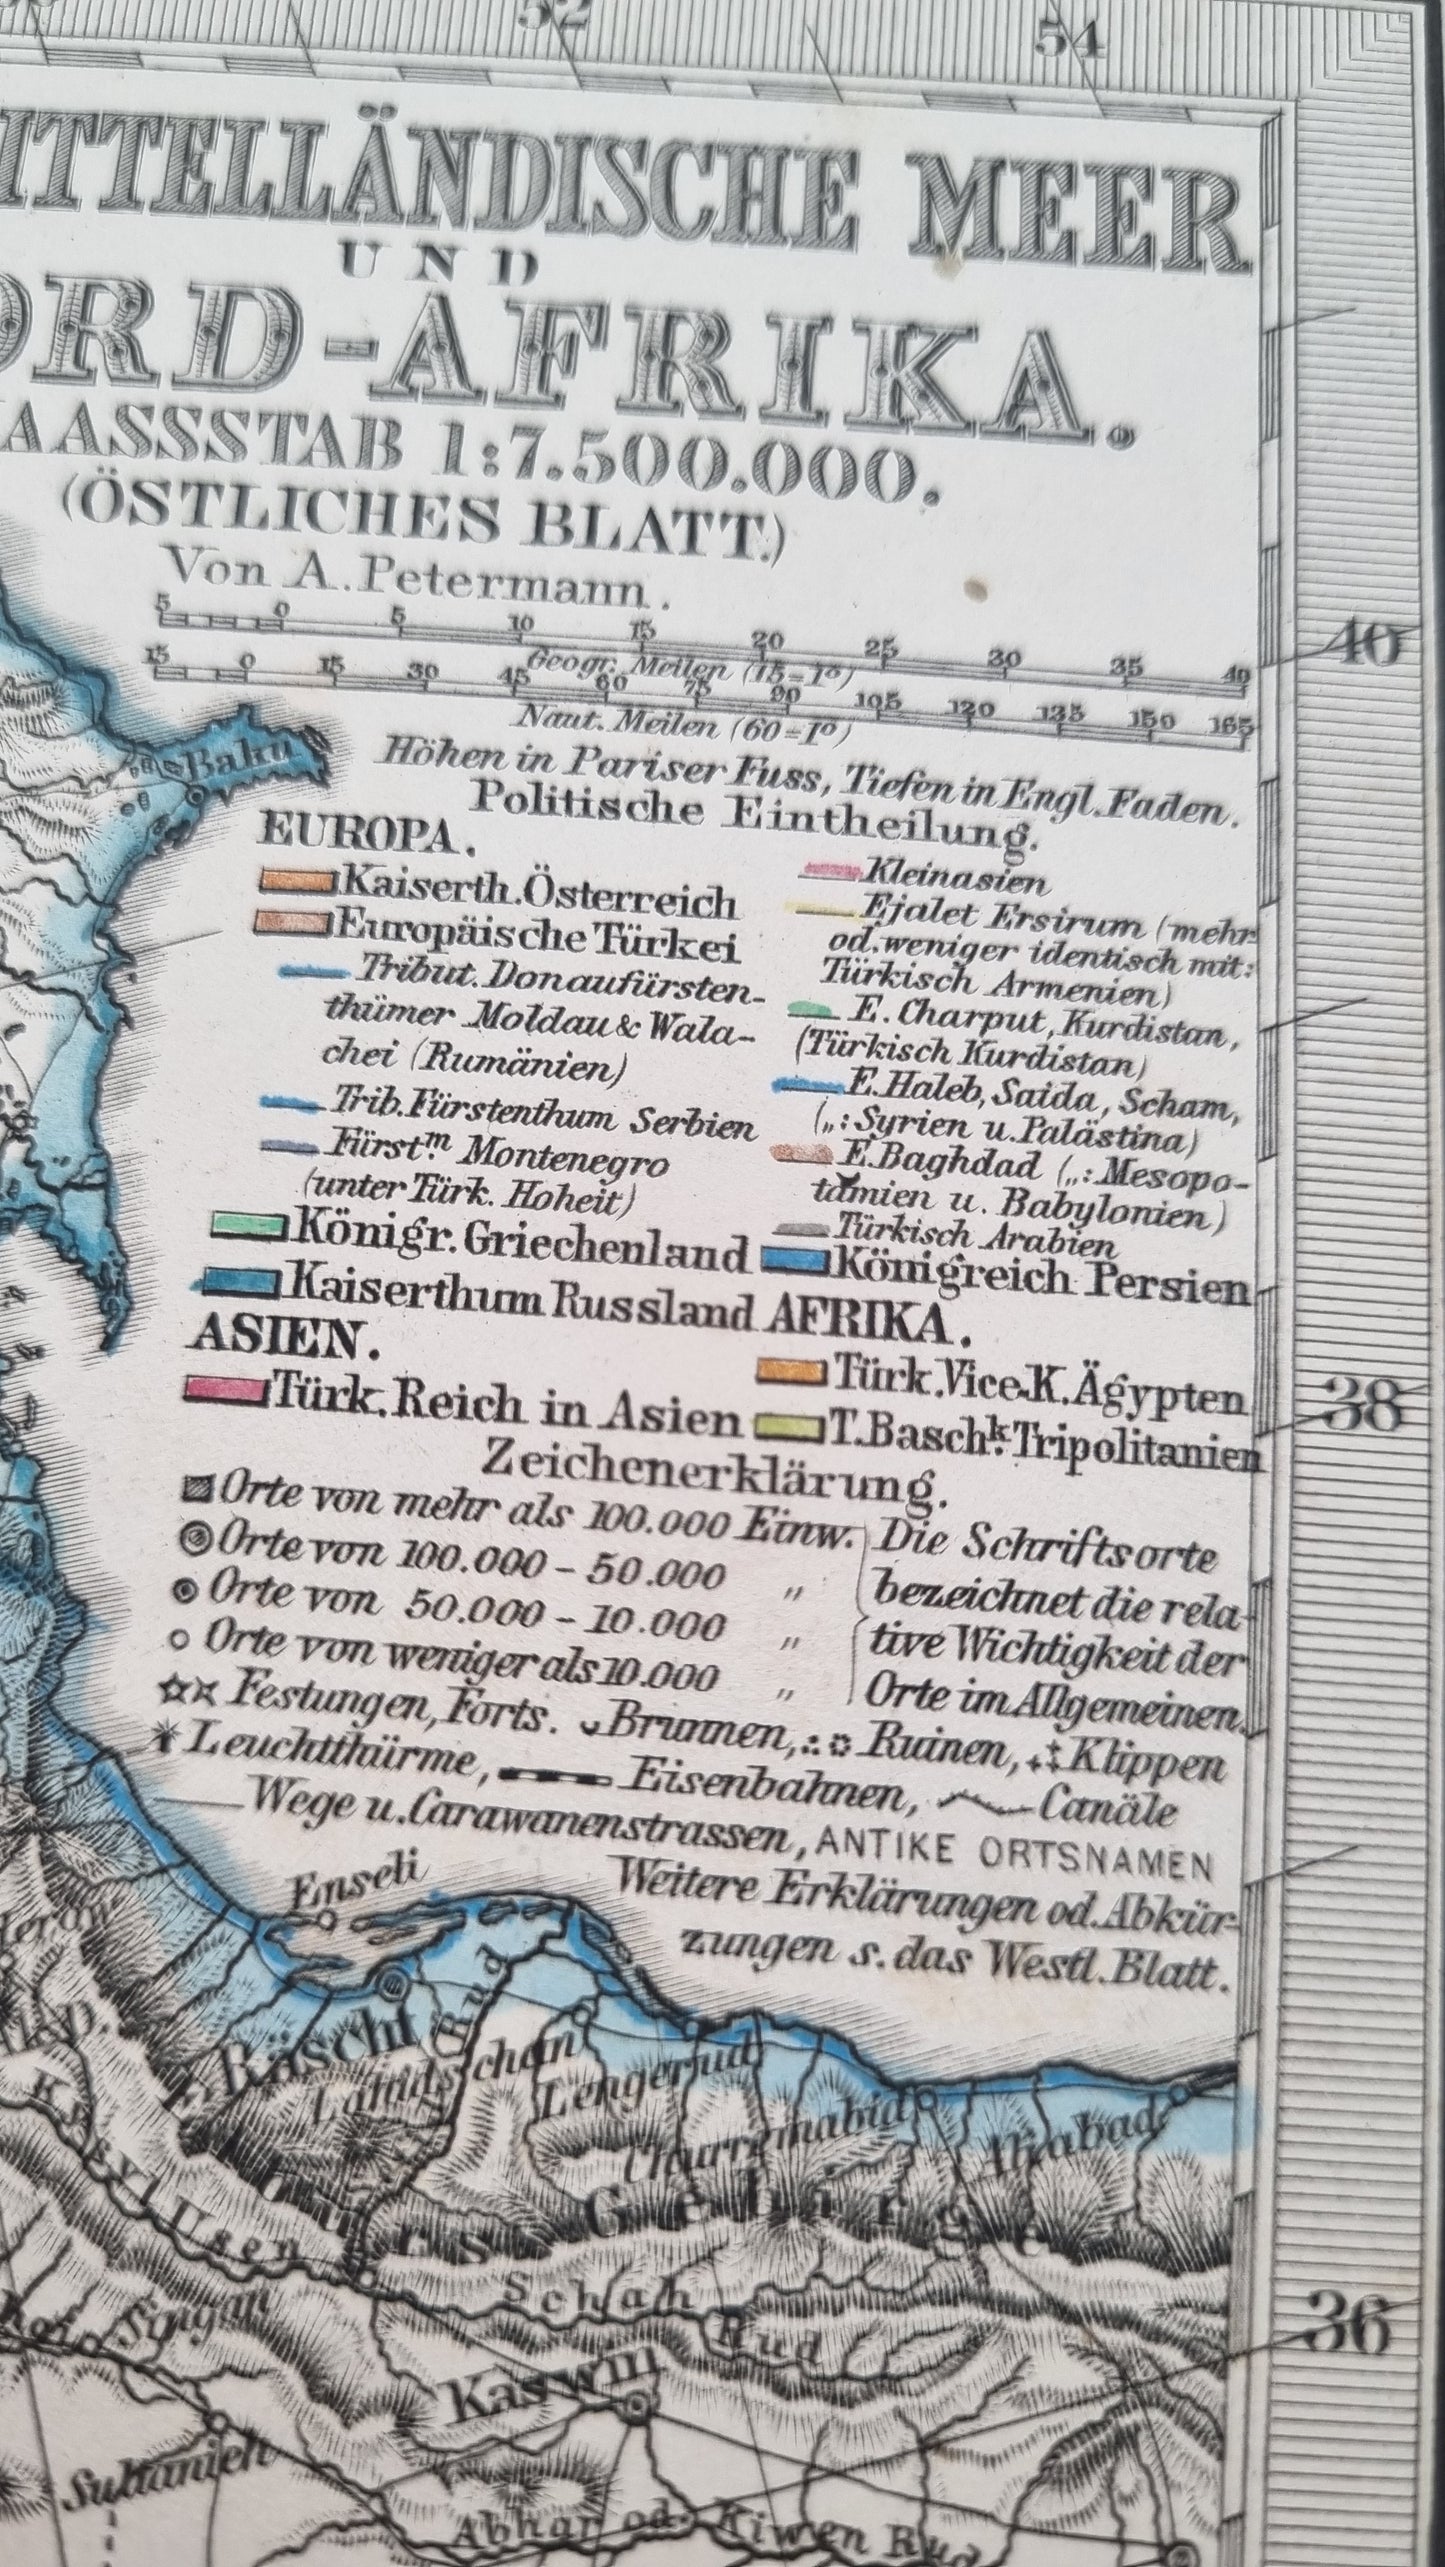 52
54
ITTELLÄNDISCHE MEER
UND
ORD-AFRIKA.
AASSSTAB 1:7.500.000.
(ÖSTLICHES BLATT.)
Von A. Petermann.
5 0 5 10 15 20 25 30 35 40
Geogr. Meilen (15=1°)
15 0 15 30 45 60 75 90 105 120 135 150 165
Naut. Meilen (60=1°)
Höhen in Pariser Fuss, Tiefen in Engl. Faden.
Politische Eintheilung.
EUROPA.
Kaiserth. Österreich
Europäische Türkei
Tribut. Donaufürsten-
thümer Moldau & Wala-
chei (Rumänien)
Trib. Fürstenthum Serbien
Fürstm. Montenegro
(unter Türk. Hoheit)
Königr. Griechenland
Kaiserthum Russland
ASIEN.
Türk. Reich in Asien
Kleinasien
Ejalet Ersirum (mehr
od. weniger identisch mit:
Türkisch Armenien)
E. Charput, Kurdistan,
(Türkisch Kurdistan)
E. Haleb, Saida, Scham,
(„: Syrien u. Palästina)
E. Baghdad („: Mesopo-
tamien u. Babylonien)
Türkisch Arabien
Königreich Persien
AFRIKA.
Türk. Vice-K. Ägypten
T. Baschk. Tripolitanien
Zeichenerklärung.
Orte von mehr als 100.000 Einw.
Orte von 100.000 - 50.000 "
Orte von 50.000 - 10.000 "
Orte von weniger als 10.000 "
Die Schriftsorte
bezeichnet die rela-
tive Wichtigkeit der
Orte im Allgemeinen.
Festungen, Forts. Brunnen, Ruinen, Klippen
Leuchtthürme, Eisenbahnen, Canäle
Wege u. Carawanenstrassen, ANTIKE ORTSNAMEN
Weitere Erklärungen od. Abkür-
zungen s. das Westl. Blatt.
40
38
36
Baku
Enseli
Räscht
Rud
Lahidschan
Lengerud
Churremabad
Aliabad
Gebirge
Kysyl Usen
Schah Rud
Kaswin
Sultanieh
Abhar od. Kiwen Rud